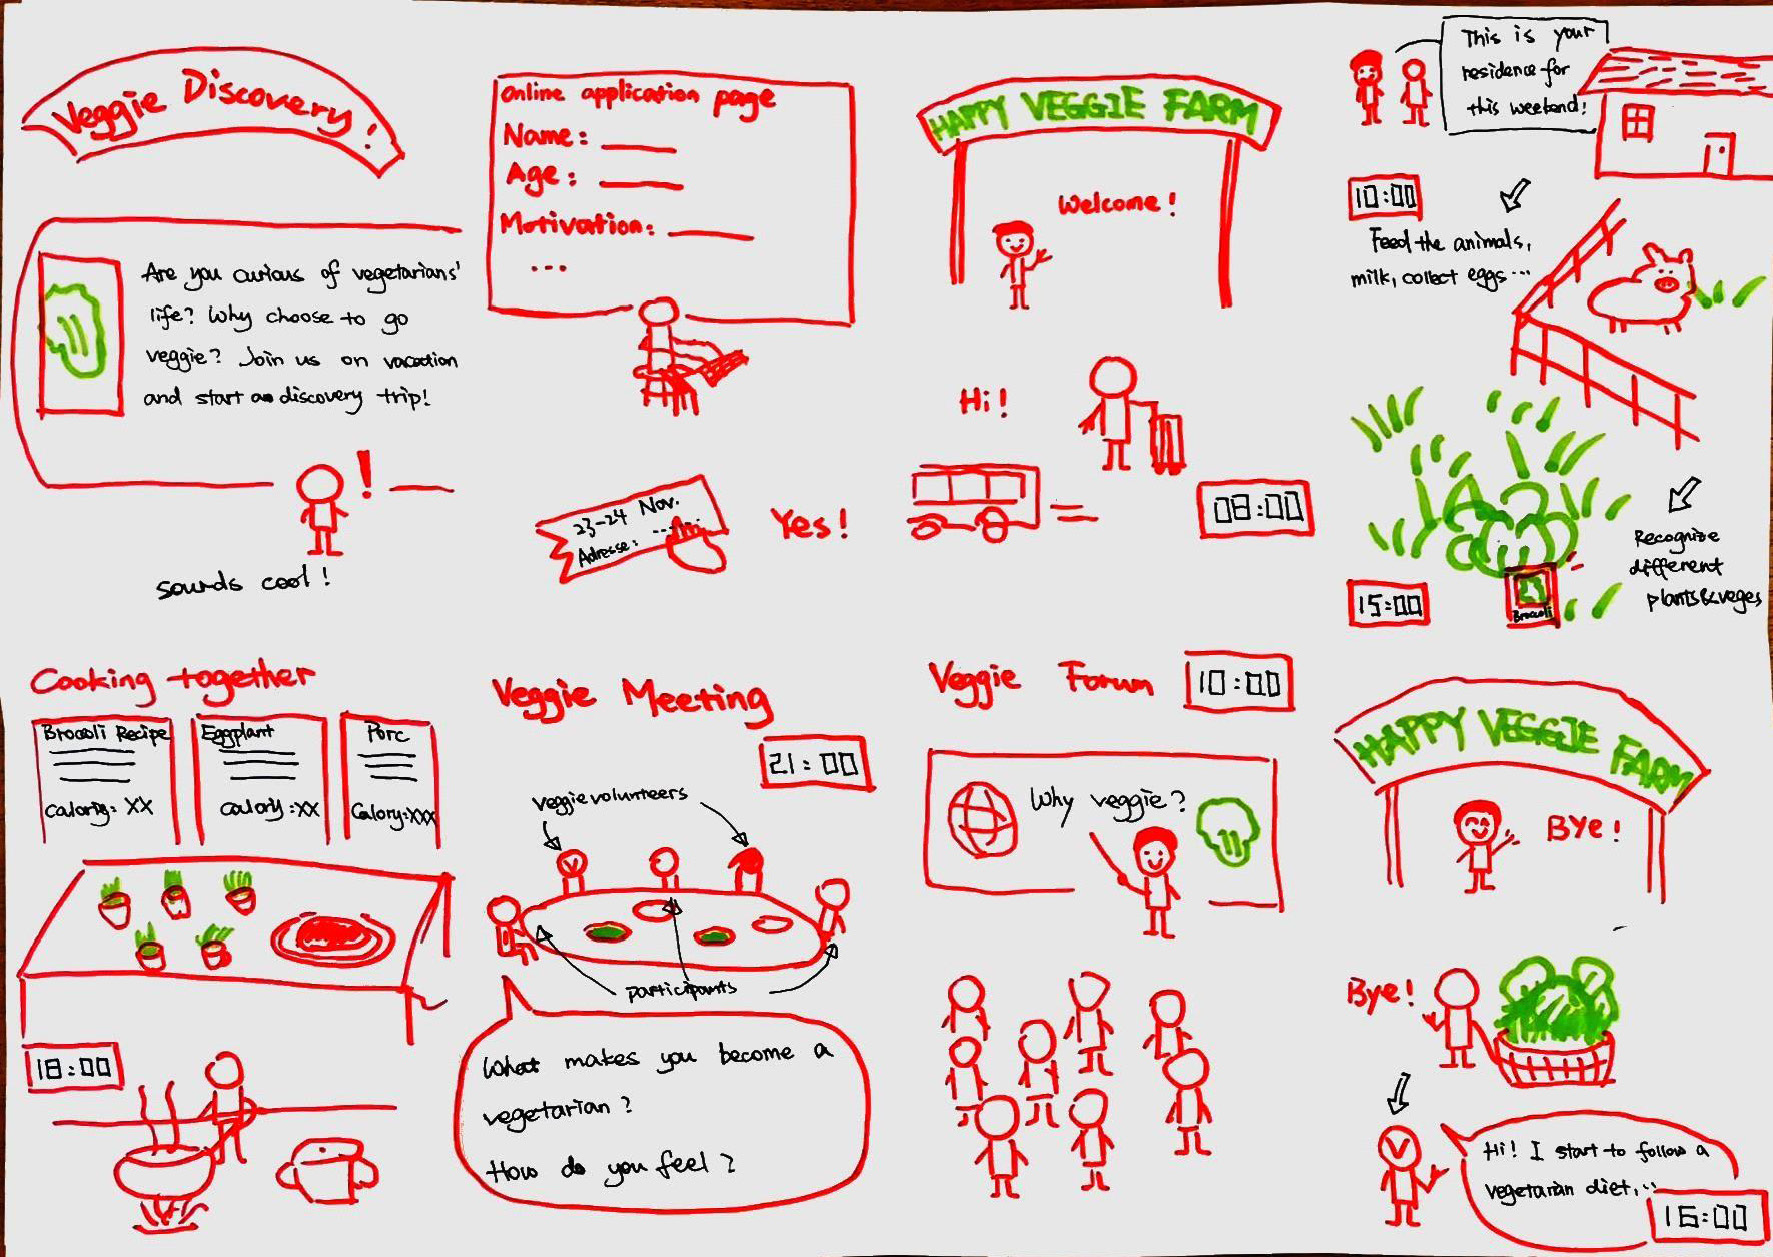 Veggie Discovery!
Are you curious of vegetarians'
life? Why choose to go
veggie? Join us on vacation
and start a discovery trip!
!
sounds cool!
Online application page
Name: ____
Age: ____
Motivation: ____
...
23-24 Nov.
Adresse: ......
Yes!
HAPPY VEGGIE FARM
Welcome!
Hi!
08:00
This is your
residence for
this weekend!
10:00
Feed the animals,
milk, collect eggs...
Recognize
different
plants&veges
15:00
Broccoli
Cooking together
Broccoli Recipe
Calory: XX
Eggplant
Calory:XX
Porc
Calory:XXX
18:00
Veggie Meeting
21:00
veggie volunteers
V
participants
What makes you become a
vegetarian?
How do you feel?
Veggie Forum
10:00
Why veggie?
HAPPY VEGGIE FARM
BYe!
Bye!
V
Hi! I start to follow a
vegetarian diet,...
16:00